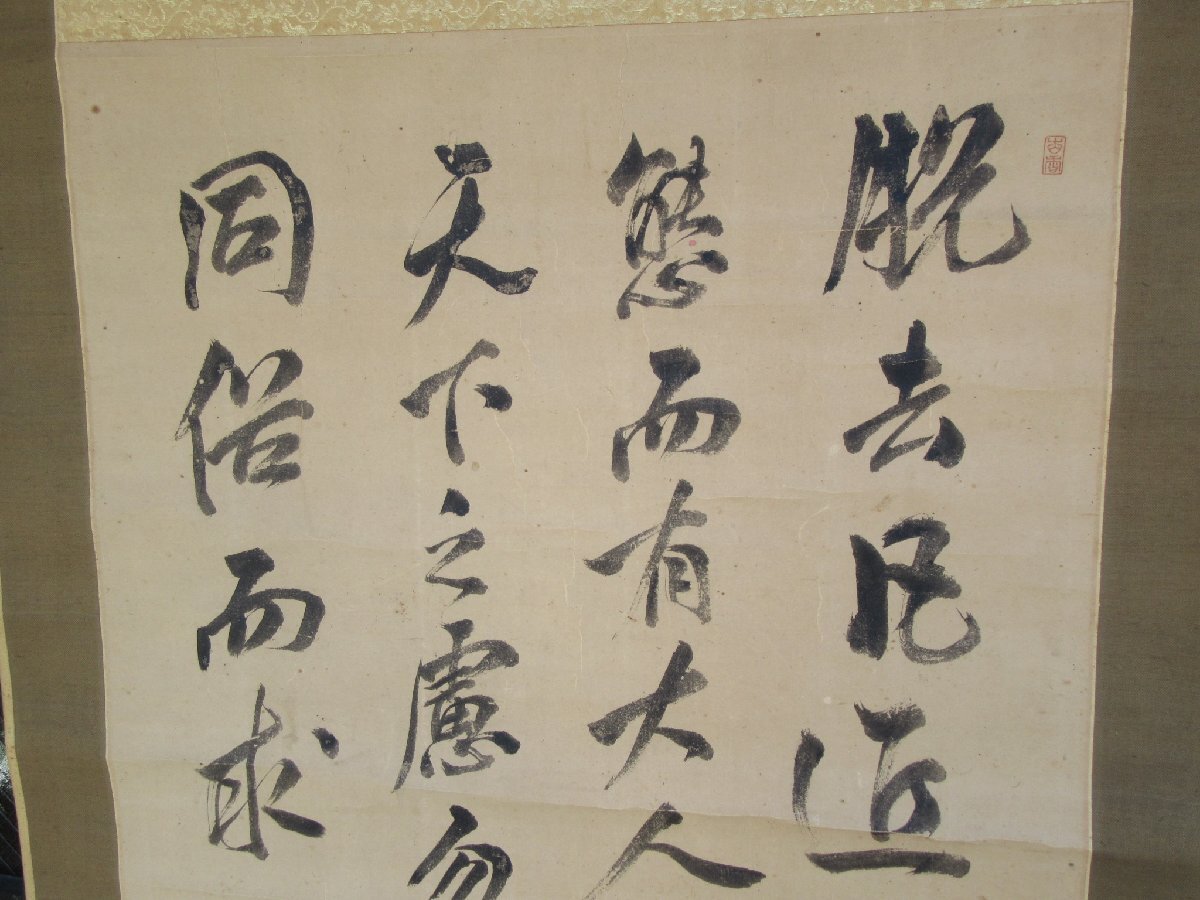 脱去凡近
態而有大人
天下之慮勿
同俗而求